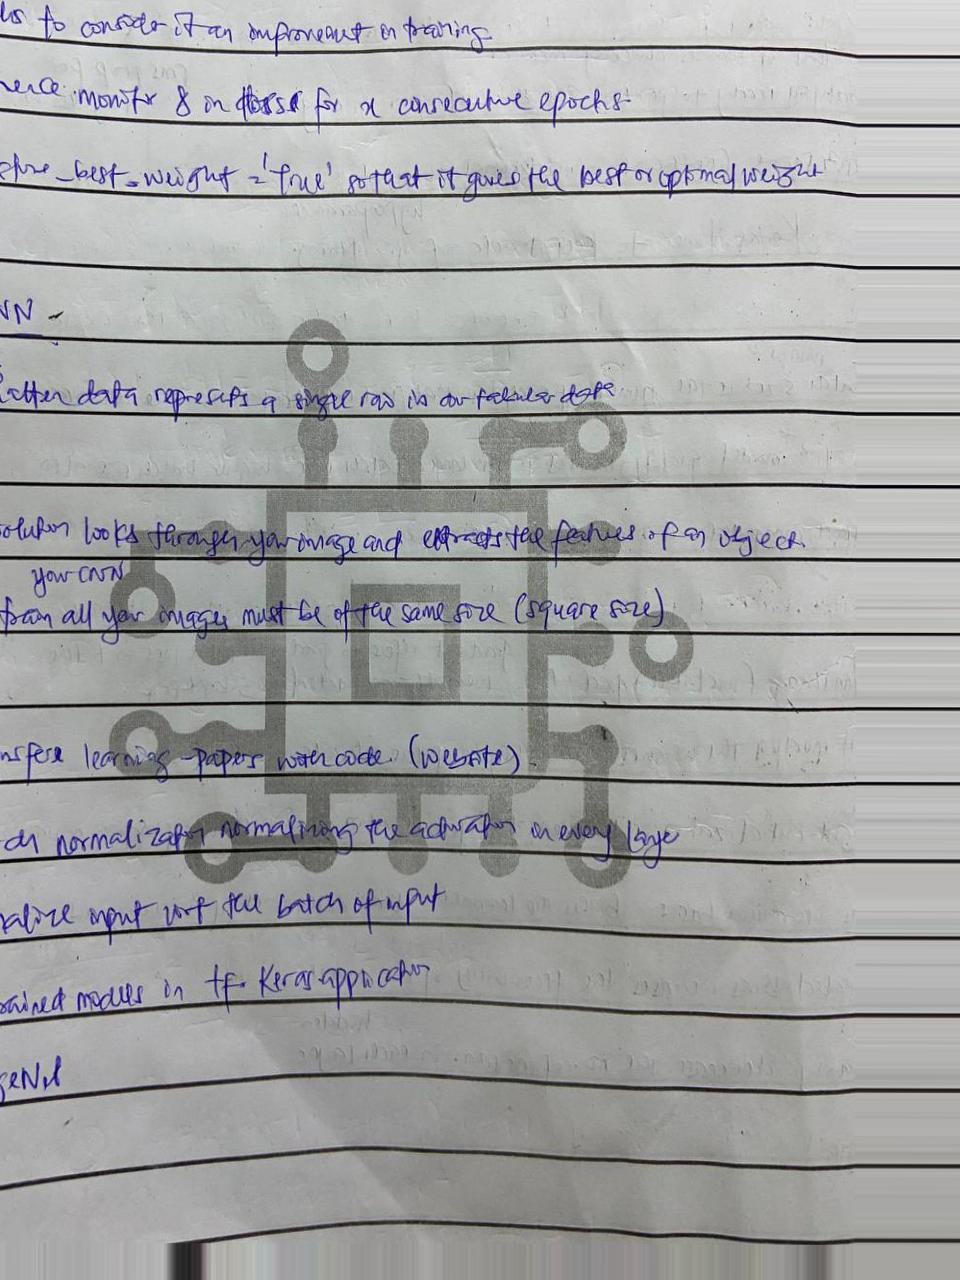 to consider it an improvement in training
monitor & in loss for x consecutive epochs
_best_weight = 'true' so that it gives the best or optimal weight
NN -
data represents a single row in our tabular data
looks through your image and extracts the features of an object.
your CNN
train all your images must be of the same size (square size)
learning - papers with code. (website)
normalization normalizing the activation in every layer
input wrt the batch of input
models in tf. Keras.application